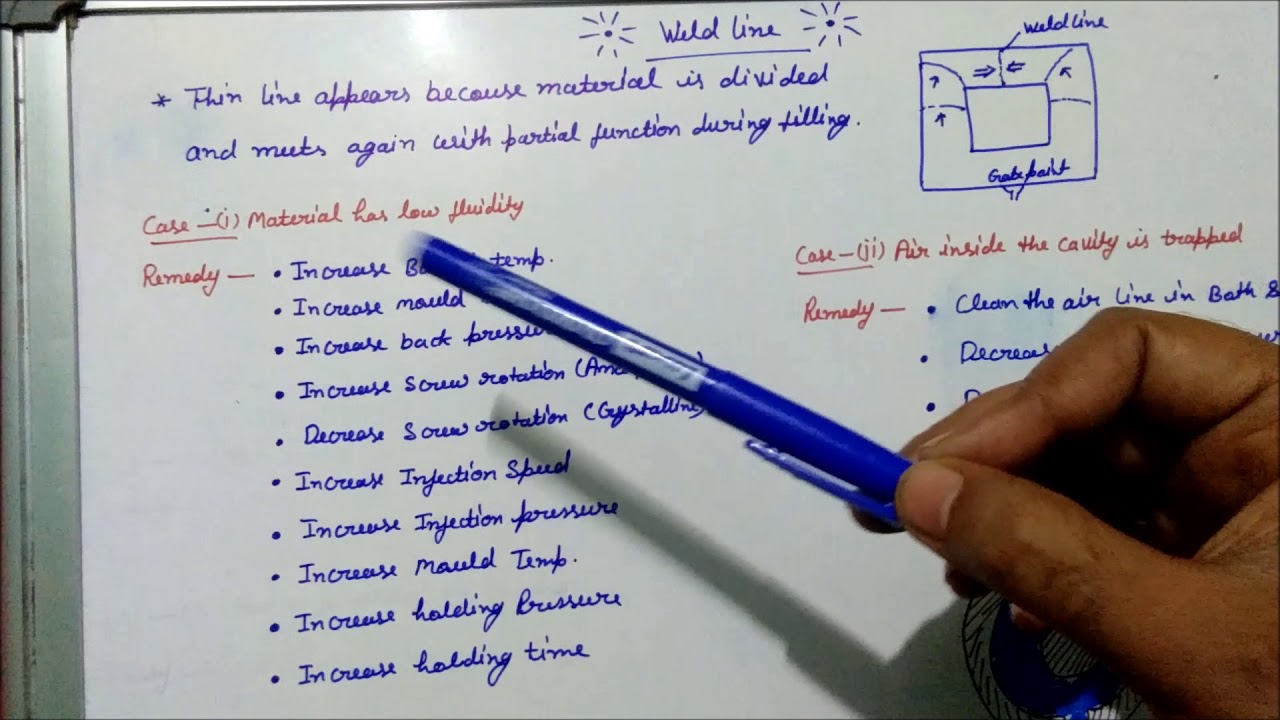 Weld line
* Thin line appears because material is divided
and meets again with partial function during filling.
Weld line
Gate point
Case-(i) Material has low fluidity
Remedy — • Increase temp.
• Increase mould
• Increase back pressure
• Increase Screw rotation
• Decrease Screw rotation (Crystalline)
• Increase Injection Speed
• Increase Injection pressure
• Increase Mould Temp.
• Increase holding Pressure
• Increase holding time
Case-(ii) Air inside the cavity is trapped
Remedy — • Clean the air line in Both
• Decrease
•